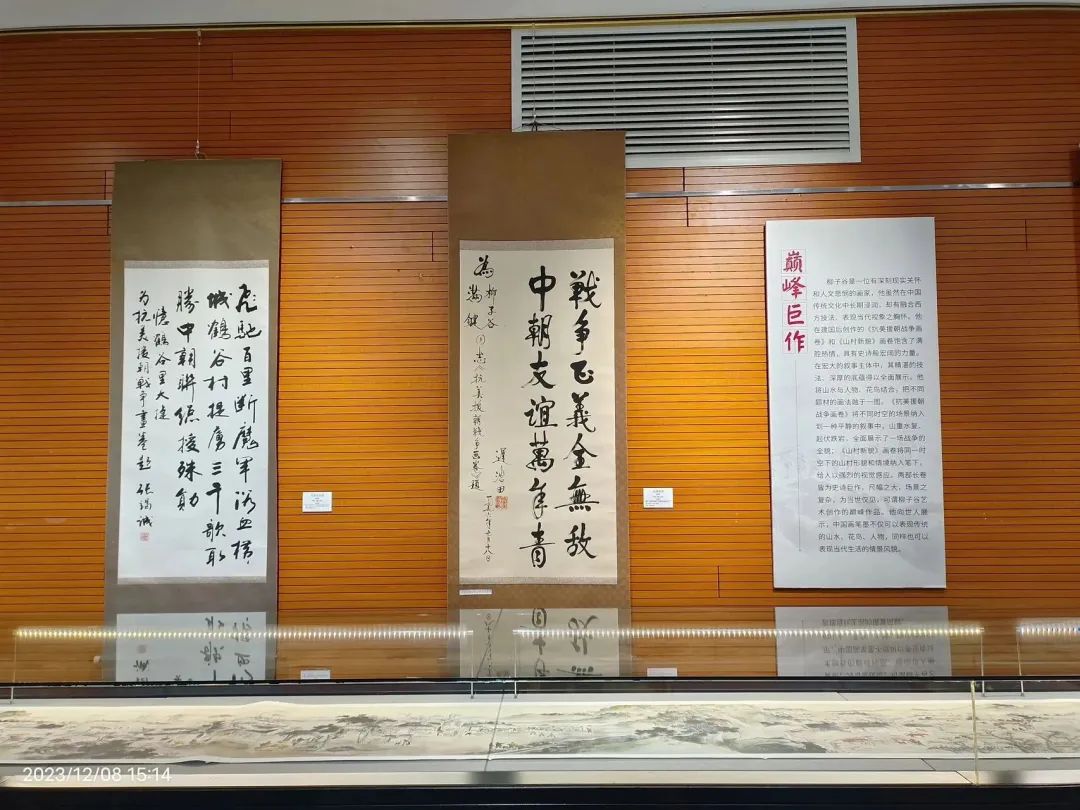 城鹤谷村捉虏三千歌取
憶鶴谷里大捷
为抗美援朝战争画卷题 张竭诚
戰争正義全無敌
中朝友誼萬年青
為柳子谷
满健同志《抗美援朝战争画卷》题
遲浩田
巅峰巨作
柳子谷是一位有深刻现实关怀
和人文悲悯的画家，他虽然在中国
传统文化中长期浸润，却有融合西
方技法、表现当代视象之胸怀。他
在建国后创作的《抗美援朝战争画
卷》和《山村新貌》画卷饱含了满
腔热情，具有史诗般宏阔的力量。
在宏大的叙事主体中，其精湛的技
法、深厚的底蕴得以全面展示。他
将山水与人物、花鸟结合，把不同
题材的画法融于一图。《抗美援朝
战争画卷》将不同时空的场景纳入
到一种平静的叙事中，山重水复、
起伏跌宕，全面展示了一场战争的
全貌；《山村新貌》画卷将同一时
空下的山村形貌和情境纳入笔下，
给人以强烈的视觉感应。两部长卷
皆为史诗巨作，尺幅之大，场景之
复杂，为当世仅见，可谓柳子谷艺
术创作的巅峰作品。他向世人展
示，中国画笔墨不仅可以表现传统
的山水、花鸟、人物，同样也可以
表现当代生活的情景风貌。
2023/12/08 15:14